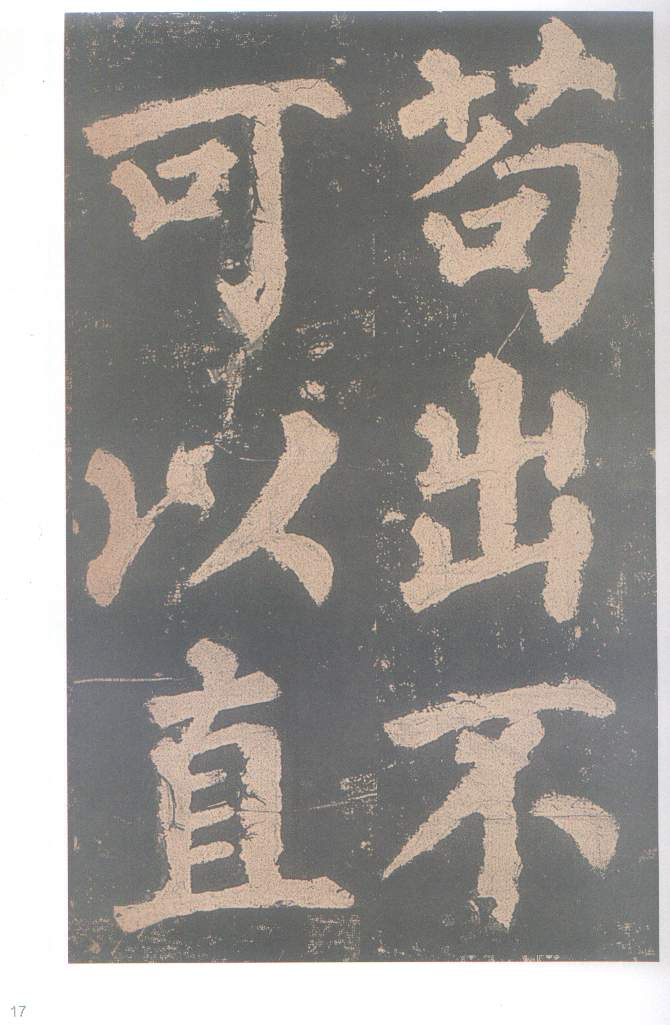 苟出不
可以直
17